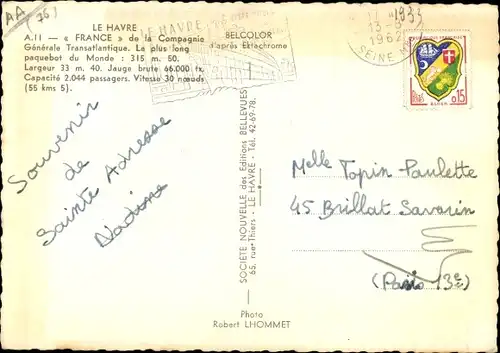 LE HAVRE
A.11 — « FRANCE » de la Compagnie
Générale Transatlantique. Le plus long
paquebot du Monde : 315 m. 50.
Largeur 33 m. 40. Jauge brute 66.000 tx.
Capacité 2.044 passagers. Vitesse 30 nœuds
(55 kms 5).
BELCOLOR
d'après Ektachrome
LE HAVRE
1962
SEINE
0,15
Souvenir
de
Sainte Adresse
Nadine
SOCIÉTÉ NOUVELLE des Editions BELLEVUES
65, rue Thiers - LE HAVRE - Tél. 42-69-78.
Melle Topin Paulette
45 Brillat Savarin
(Paris 13e)
Photo
Robert LHOMMET